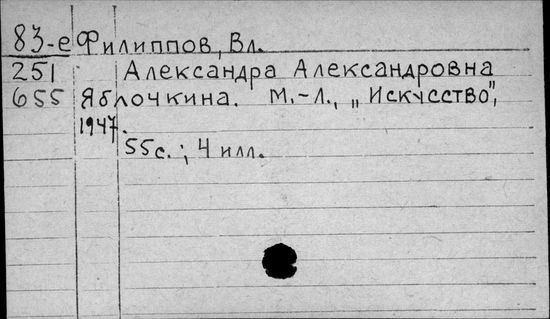 83-е Филиппов, Вл.
251 Александра Александровна
655 Яблочкина. М.-Л., „Искусство",
1947.
55с.; 4 илл.